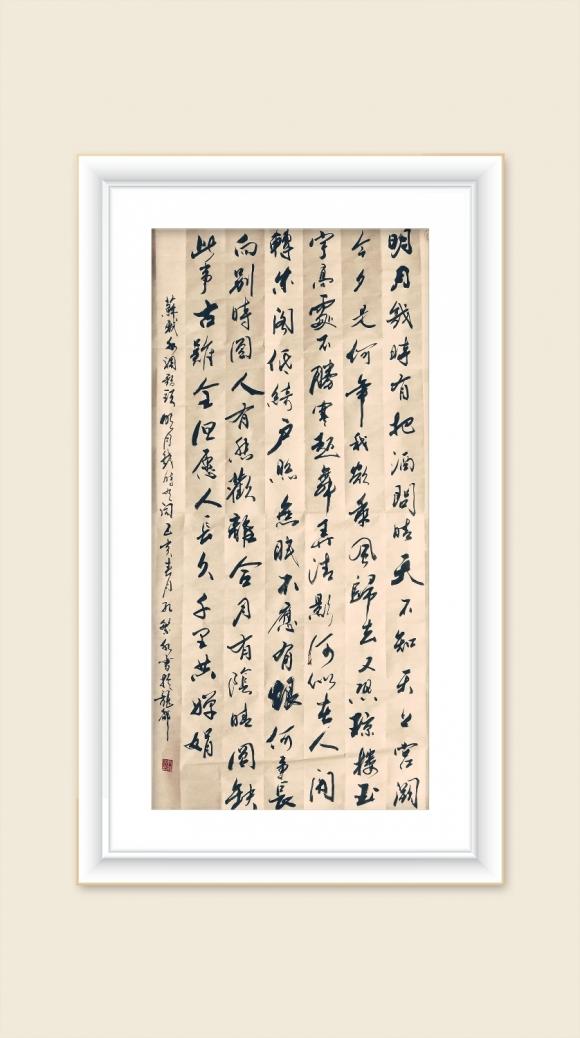 明月幾時有把酒問晴天不知天上宮闕
今夕是何年我欲乘風歸去又恐琼樓玉
宇高處不勝寒起舞弄清影何似在人間
轉朱閣低綺户照無眠不應有恨何事長
向别時圓人有悲歡離合月有陰晴圓缺
此事古難全但愿人長久千里共嬋娟
蘇軾水調歌頭明月幾時有詞己亥春月孔繁書於龍都